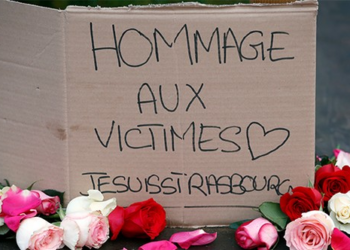 HOMMAGE
AUX
VICTIMES♡
JESUISSTRASBOURG